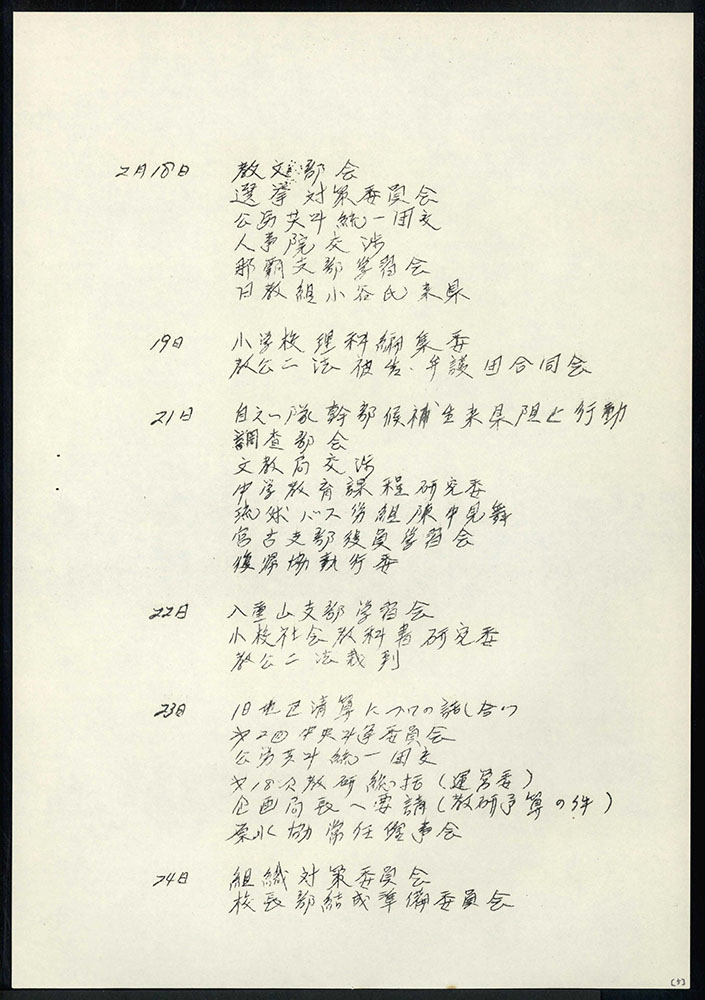 2月18日 教文部会
選挙対策委員会
公労共斗統一団交
人事院交渉
那覇支部学習会
日教組小谷氏来県
19日 小学校理科編集委
教公二法被告・弁護団合同会
21日 自え隊幹部候補生来県阻止行動
調査部会
文教局交渉
中学教育課程研究委
琉球バス労組陳中見舞
宮古支部役員学習会
復帰協執行委
22日 八重山支部学習会
小校社会教科書研究委
教公二法裁判
23日 旧地区清算についての話し合い
才2回中央斗争委員会
公労共斗統一団交
才18次教研総括(運営委)
企画局長へ要請(教研予算の件)
原水協常任理事会
24日 組織対策委員会
校長部結成準備委員会